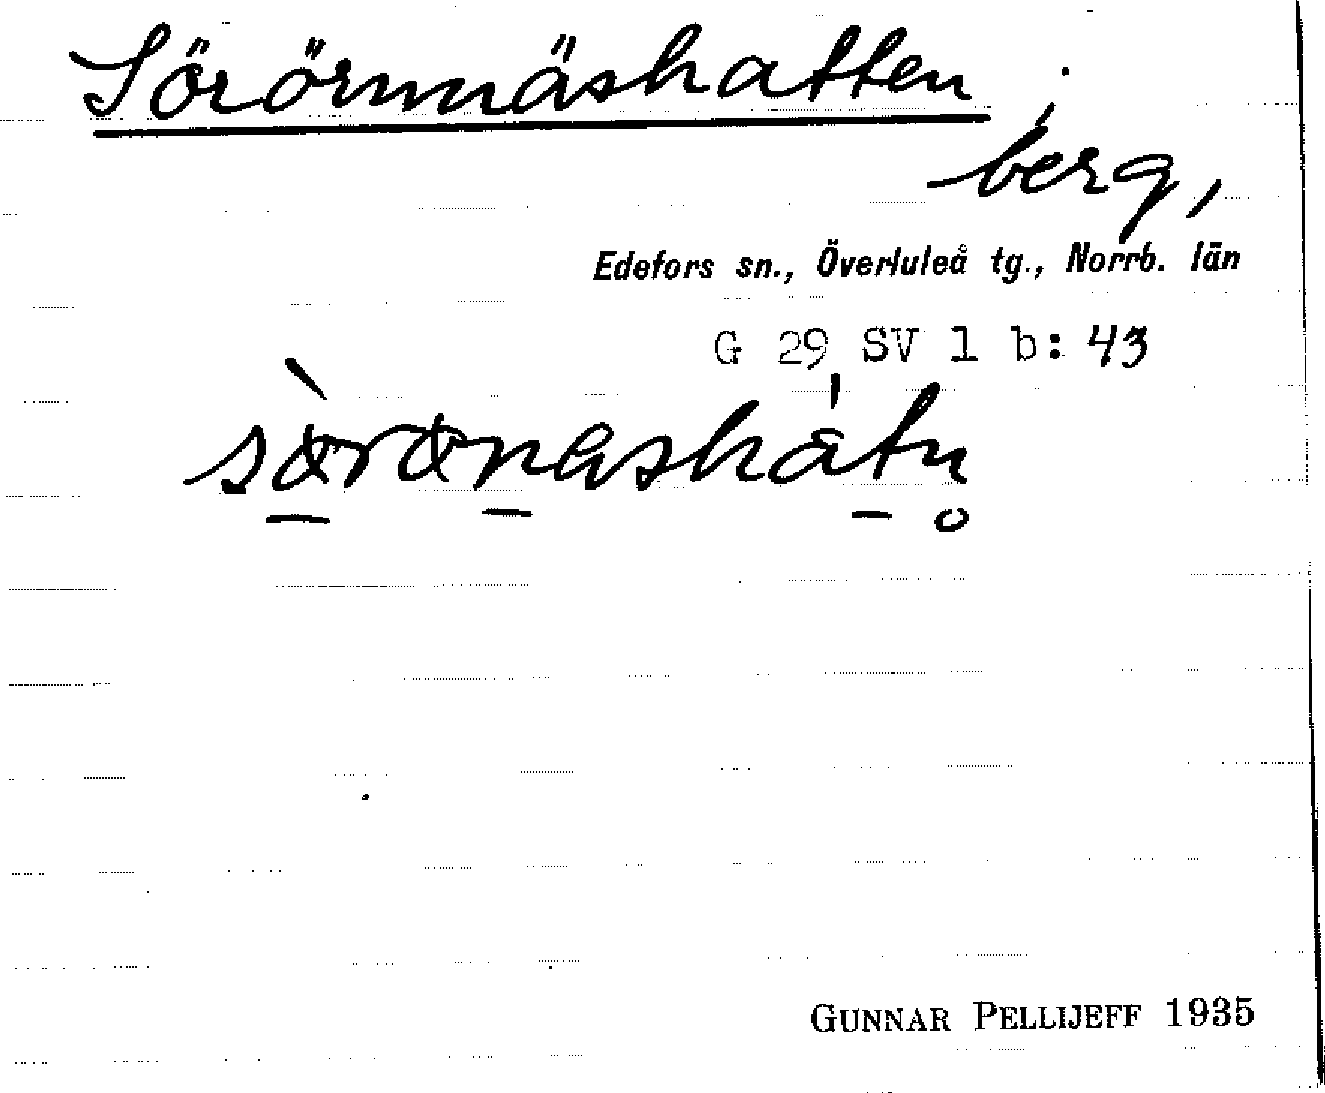 Sörörnnäshatten,
berg,
Edefors sn., Överluleå tg., Norrb. län
G 29 SV 1 b: 43
GUNNAR PELLIJEFF 1935